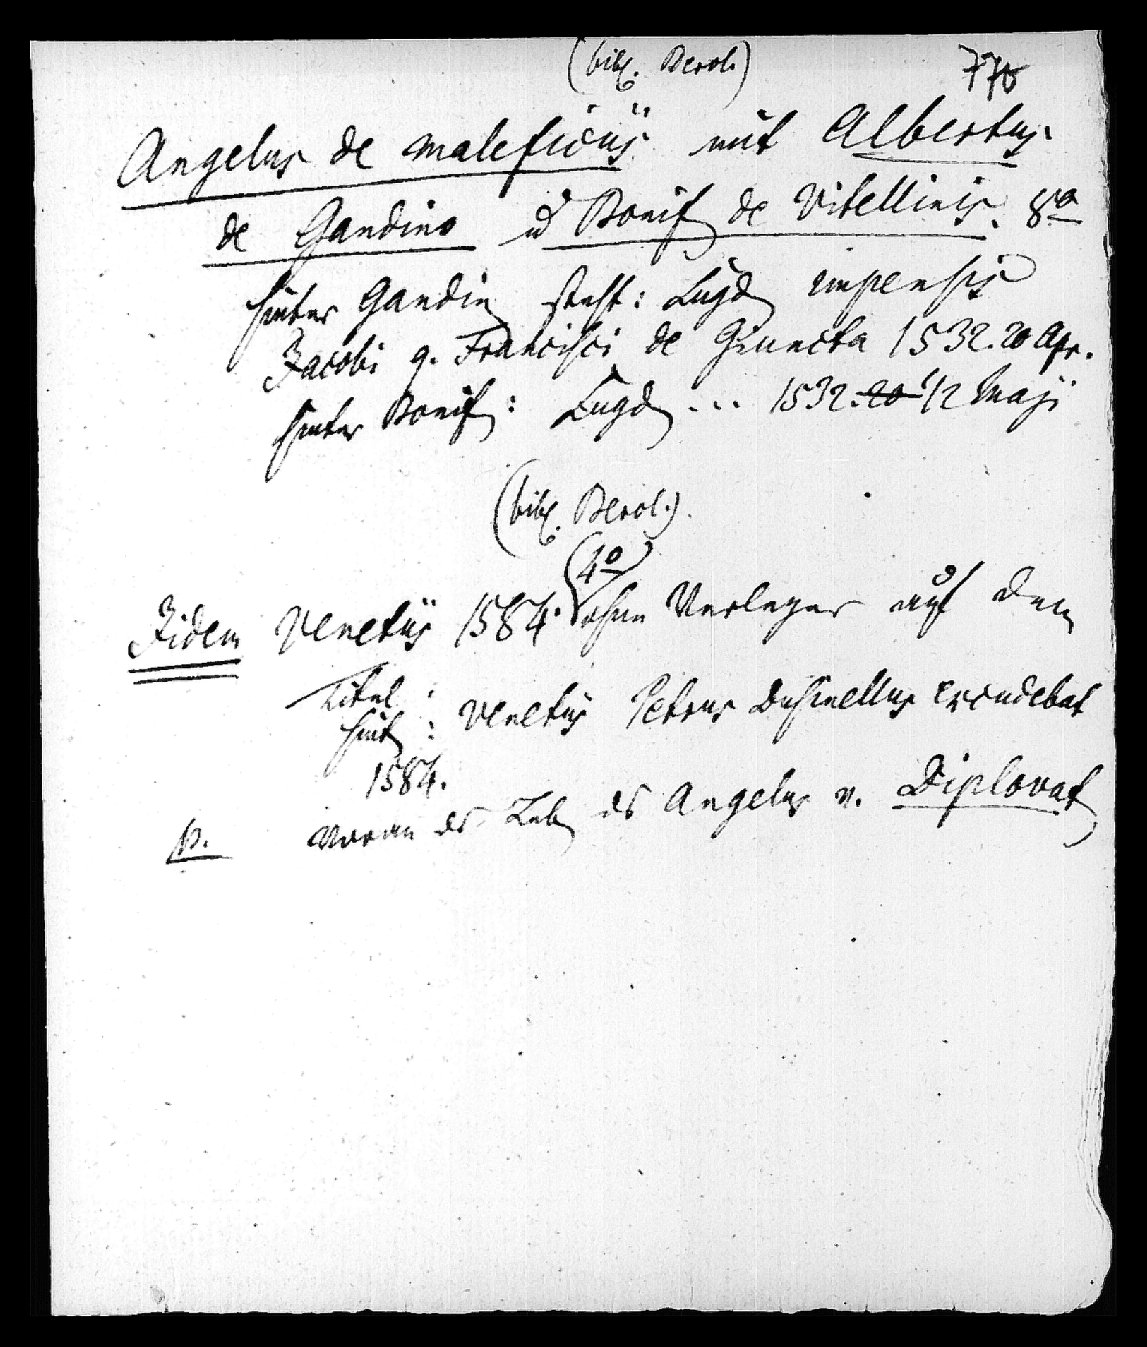 (bibl. Berol.)
770
Angelus de maleficiis mit Albertus
de Gandino u Bonif de Vitellinis. 8o
hinter Gandin steht: Lugd impensis
Jacobi q. Francisci de Giuncta 1532. 20 Apr.
hinter Bonif: Lugd ... 1532. 20 12 Maji
(bibl. Berol.)
(4o)
Iidem Venetiis 1584. ohne Verleger auf dem
Titel:
hint: Venetiis Petrus Dusinellus excudebat
1584.
Voran das Leb des Angelus v. Diplovat